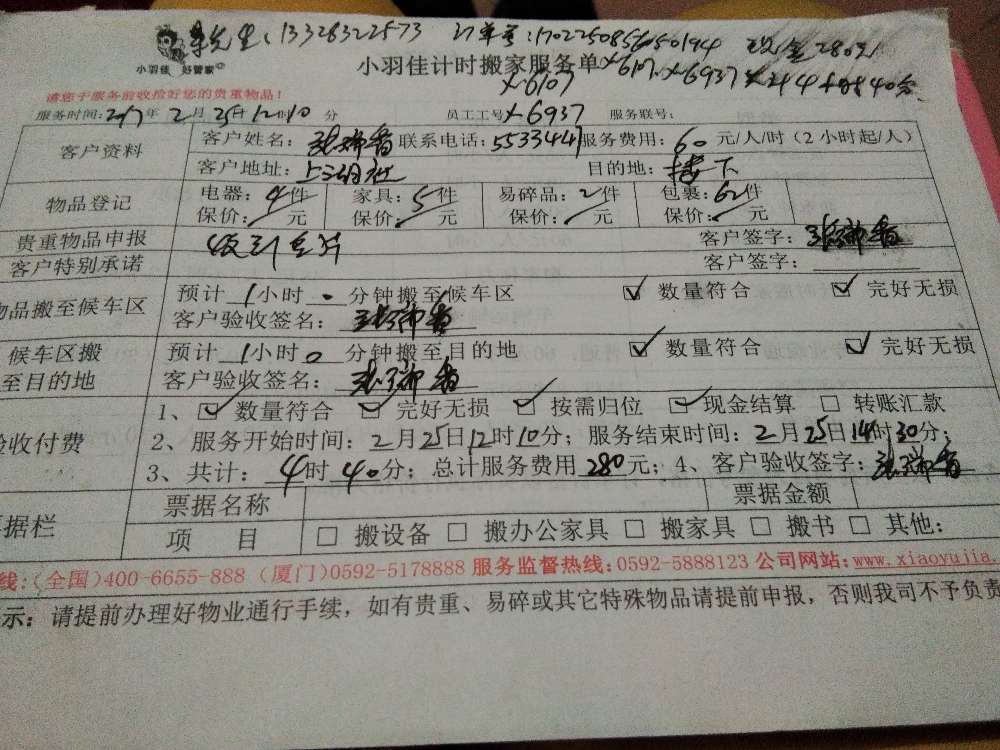 先生：13328322573 订单号：1702250856050194 现金280元
小羽佳 好管家
小羽佳计时搬家服务单 X6107 X6937
X6107
请您于服务前收捡好您的贵重物品！
服务时间：2017年2月25日12时10分 员工工号X6937 服务联号：
客户资料 客户姓名： 联系电话：5533447 服务费用：60元/人/时（2小时起/人）
客户地址： 目的地：楼下
物品登记 电器：4件 家具：5件 易碎品：2件 包裹：62件
保价：/元 保价：/元 保价：/元 保价：/元
贵重物品申报 客户签字：
客户特别承诺 客户签字：
物品搬至候车区 预计1小时0分钟搬至候车区 ☑ 数量符合 ☑ 完好无损
客户验收签名：
候车区搬至目的地 预计1小时0分钟搬至目的地 ☑ 数量符合 ☑ 完好无损
客户验收签名：
验收付费 1、☑ 数量符合 ☑ 完好无损 ☑ 按需归位 ☑ 现金结算 □ 转账汇款
2、服务开始时间：2月25日12时10分；服务结束时间：2月25日14时30分；
3、共计：4时40分；总计服务费用280元；4、客户验收签字：
票据栏 票据名称 票据金额
项 目 □ 搬设备 □ 搬办公家具 □ 搬家具 □ 搬书 □ 其他：
线：(全国)400-6655-888 (厦门)0592-5178888 服务监督热线：0592-5888123 公司网站：www.xiaoyujia.
示：请提前办理好物业通行手续，如有贵重、易碎或其它特殊物品请提前申报，否则我司不予负责